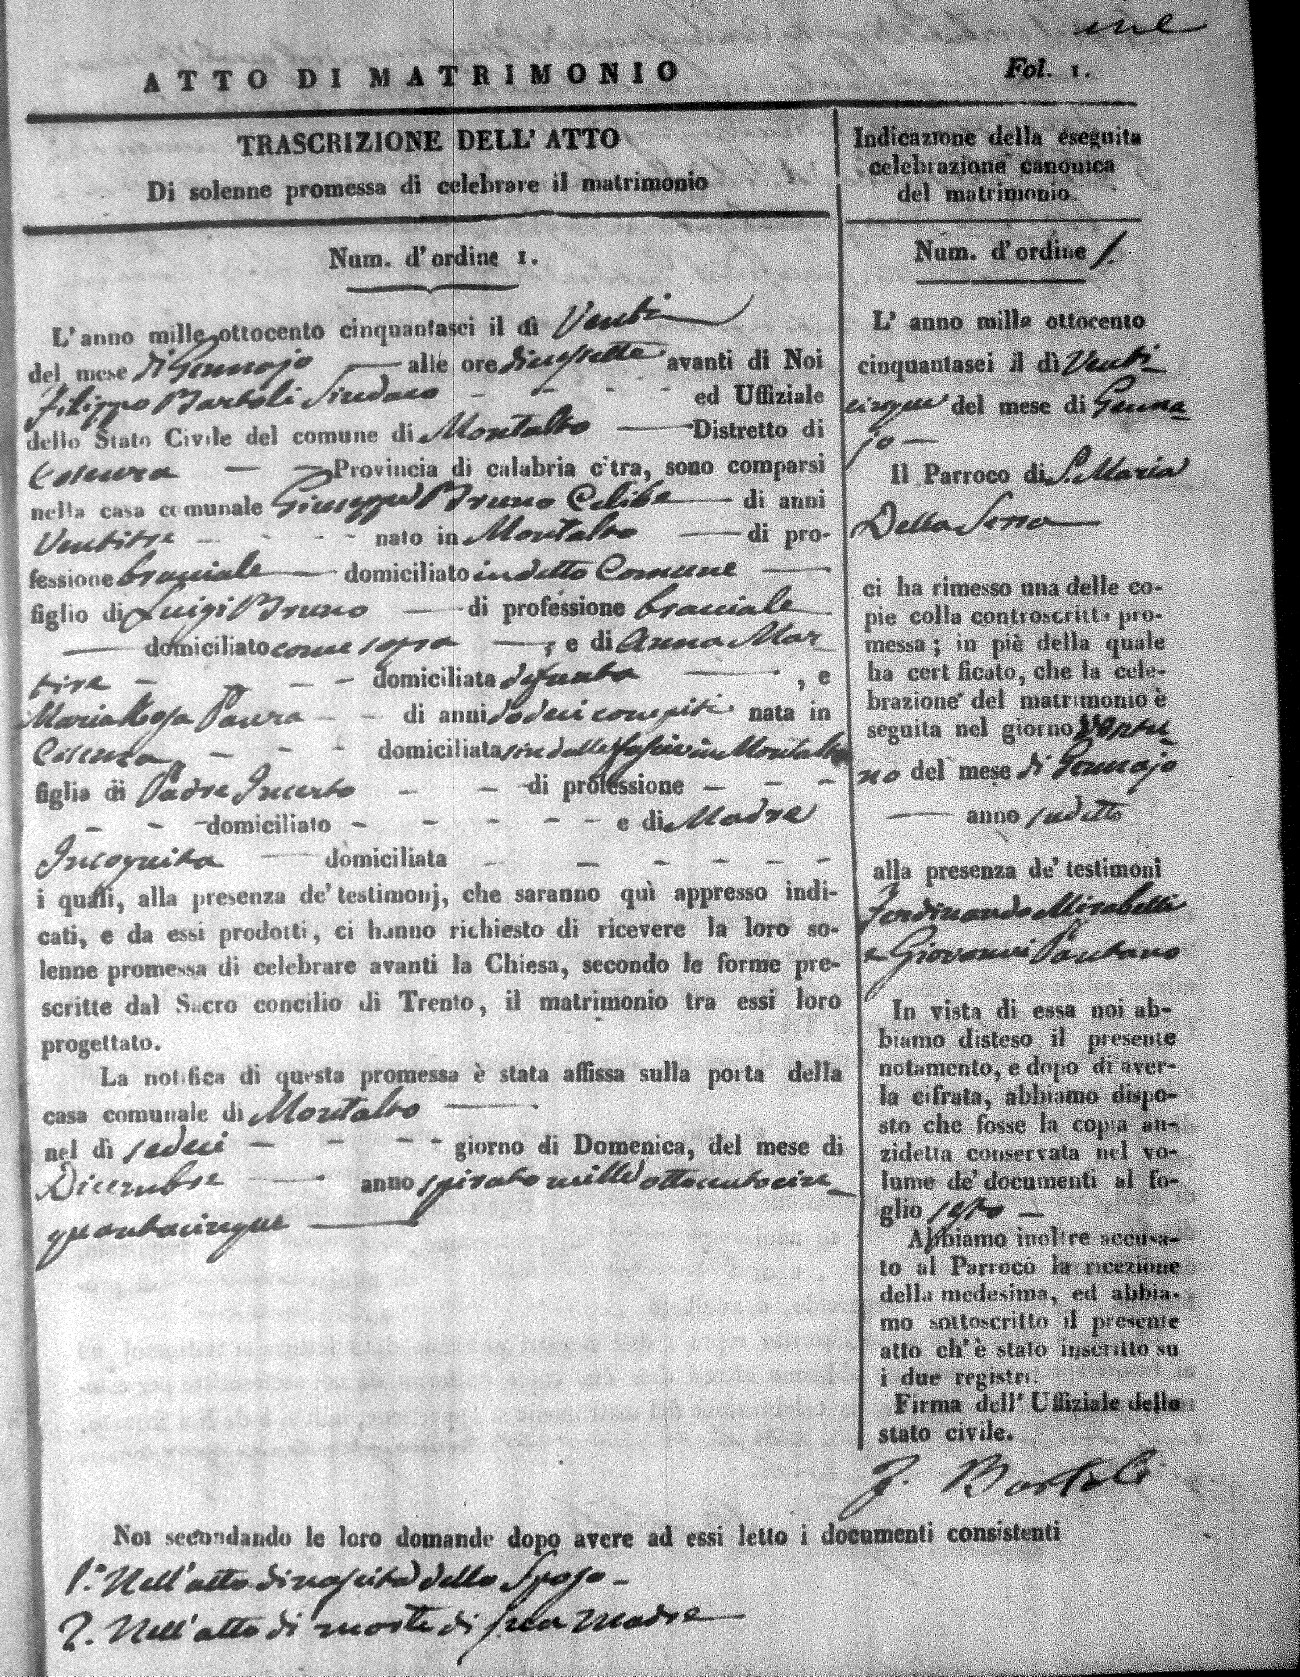 ATTO DI MATRIMONIO
Fol. 1.
TRASCRIZIONE DELL' ATTO
Di solenne promessa di celebrare il matrimonio
Num. d'ordine 1.
L'anno mille ottocento cinquantasei il dì Venti
del mese di Gennajo alle ore diciassette avanti di Noi
Filippo Bartoli Sindaco ed Uffiziale
dello Stato Civile del comune di Montalto Distretto di
Cosenza Provincia di calabria citra, sono comparsi
nella casa comunale Giuseppe Bruno Celibe di anni
Ventitre nato in Montalto di pro-
fessione bracciale domiciliato in detto Comune
figlio di Luigi Bruno di professione bracciale
domiciliato come sopra , e di Anna Mar
tire domiciliata defunta , e
Maria Rosa Paura di anni dodeci compiti nata in
Cosenza domiciliata in Montalto
figlia di Padre Incerto di professione
domiciliato e di Madre
Incognita domiciliata
i quali, alla presenza de' testimonj, che saranno quì appresso indi-
cati, e da essi prodotti, ci hanno richiesto di ricevere la loro so-
lenne promessa di celebrare avanti la Chiesa, secondo le forme pre-
scritte dal Sacro concilio di Trento, il matrimonio tra essi loro
progettato.
La notifica di questa promessa è stata affissa sulla porta della
casa comunale di Montalto
nel dì sedeci giorno di Domenica, del mese di
Dicembre anno spirato mille ottocento cin
quantacinque
Indicazione della eseguita
celebrazione canonica
del matrimonio.
Num. d'ordine 1.
L' anno mille ottocento
cinquantasei il dì Venti
cinque del mese di Genna
jo
Il Parroco di S. Maria
Della Serra
ci ha rimesso una delle co-
pie colla controscritta pro-
messa; in piè della quale
ha certificato, che la cele-
brazione del matrimonio è
seguita nel giorno Ventu
no del mese di Gennajo
anno sudetto
alla presenza de' testimoni
Ferdinando Mirabelli
e Giovanni Pantano
In vista di essa noi ab-
biamo disteso il presente
notamento, e dopo di aver-
la cifrata, abbiamo dispo-
sto che fosse la copia an-
zidetta conservata nel vo-
lume de' documenti al fo-
glio sesto
Abbiamo inoltre accusa-
to al Parroco la ricezione
della medesima, ed abbia-
mo sottoscritto il presente
atto ch'è stato inscritto su
i due registri.
Firma dell' Uffiziale dello
stato civile.
F. Bartoli
Noi secondando le loro domande dopo avere ad essi letto i documenti consistenti
1.° Nell'atto di nascita dello Sposo
2. Nell'atto di morte di sua Madre